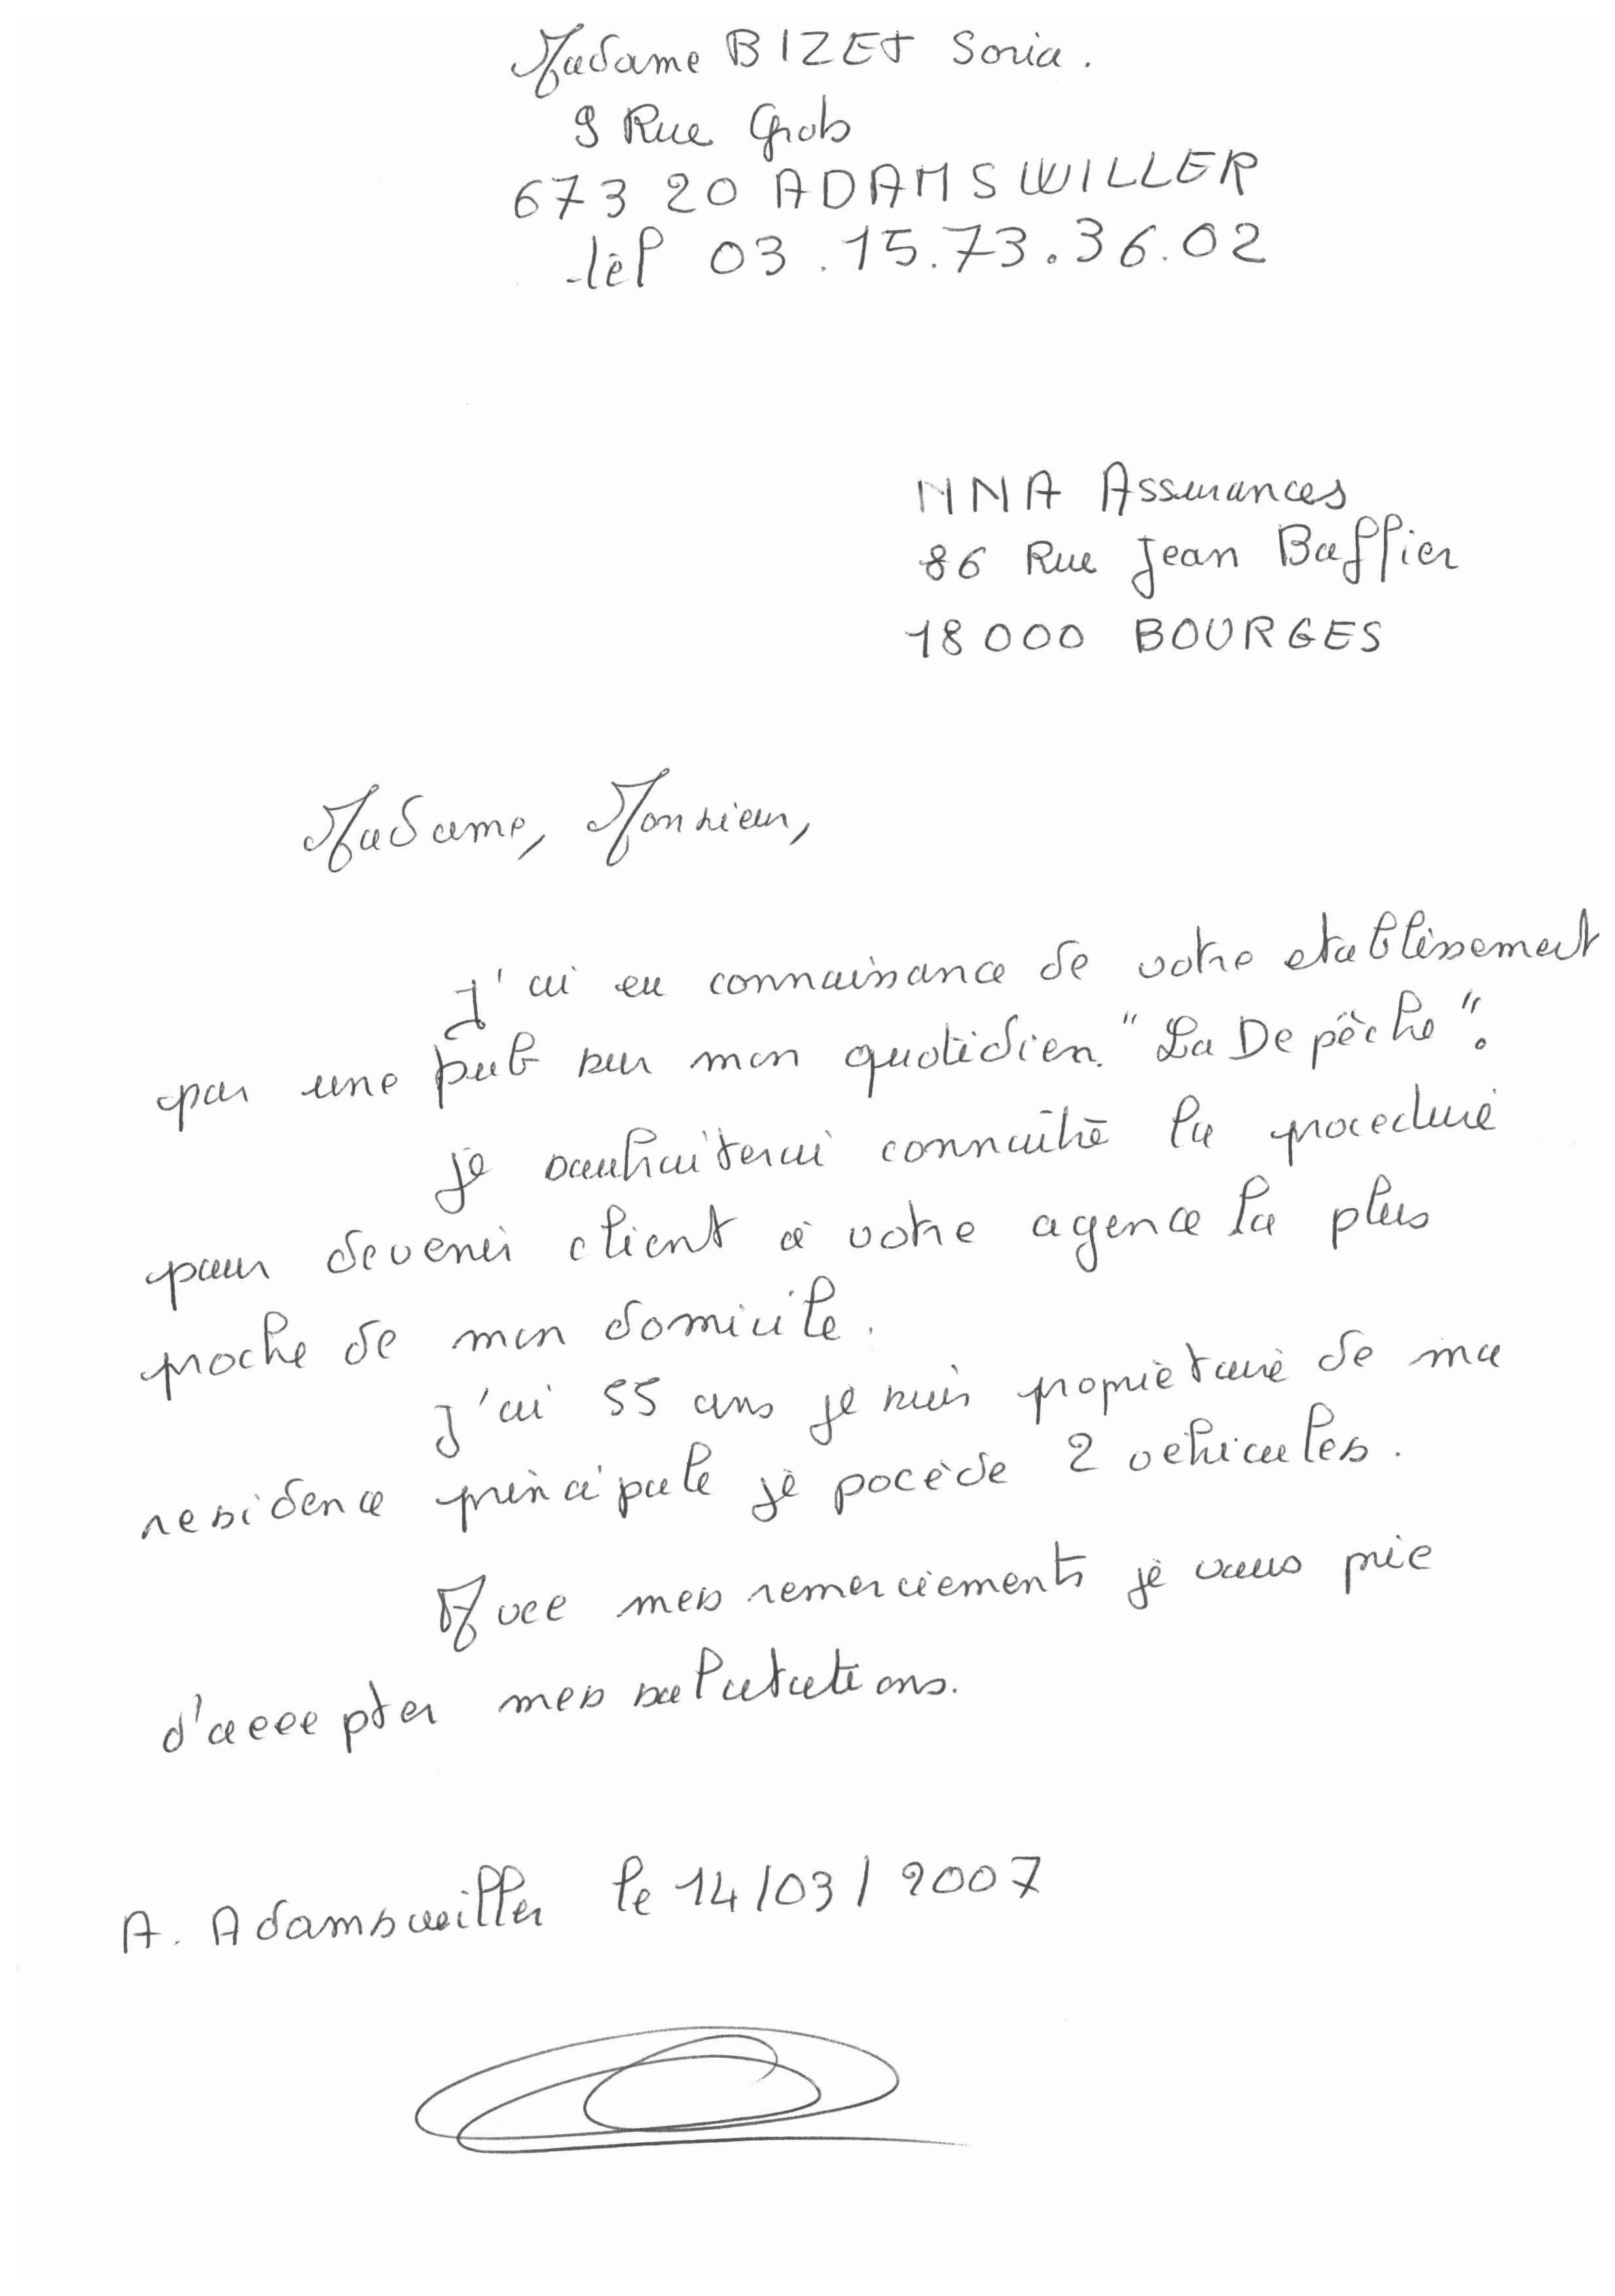 Madame BIZET Soria.
9 Rue Grob
673 20 ADAMSWILLER
tèl 03.15.73.36.02
MNA Assurances
86 Rue Jean Baffier
18000 BOURGES
Madame, Monsieur,
J'ai eu connaissance de votre etablissement
par une pub sur mon quotidien "La Depêche".
je souhaiterai connaître la procedure
pour devenir client à votre agence la plus
proche de mon domicile.
J'ai 55 ans je suis propriètaire de ma
residence principale je pocède 2 vehicules.
Avec mes remerciements je vous prie
d'accepter mes salutations.
A. Adamswiller le 14/03/2007